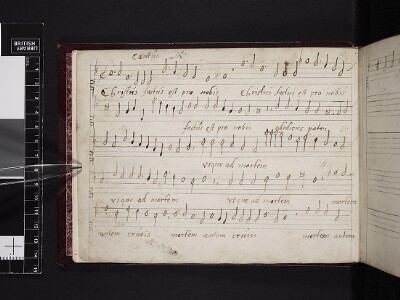 BRITISH
LIBRARY
Cantus
Christus factus est pro nobis Christus factus est pro nobis
factus est pro nobis obediens patri
vsque ad mortem
vsque ad mortem vsque ad mortem mortem
autem crucis mortem autem crucis mortem autem